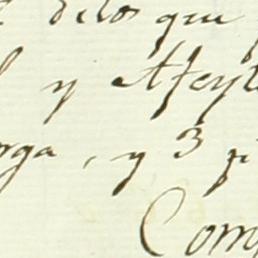 delos que
y Afeyt
rga, y 3 p
Com